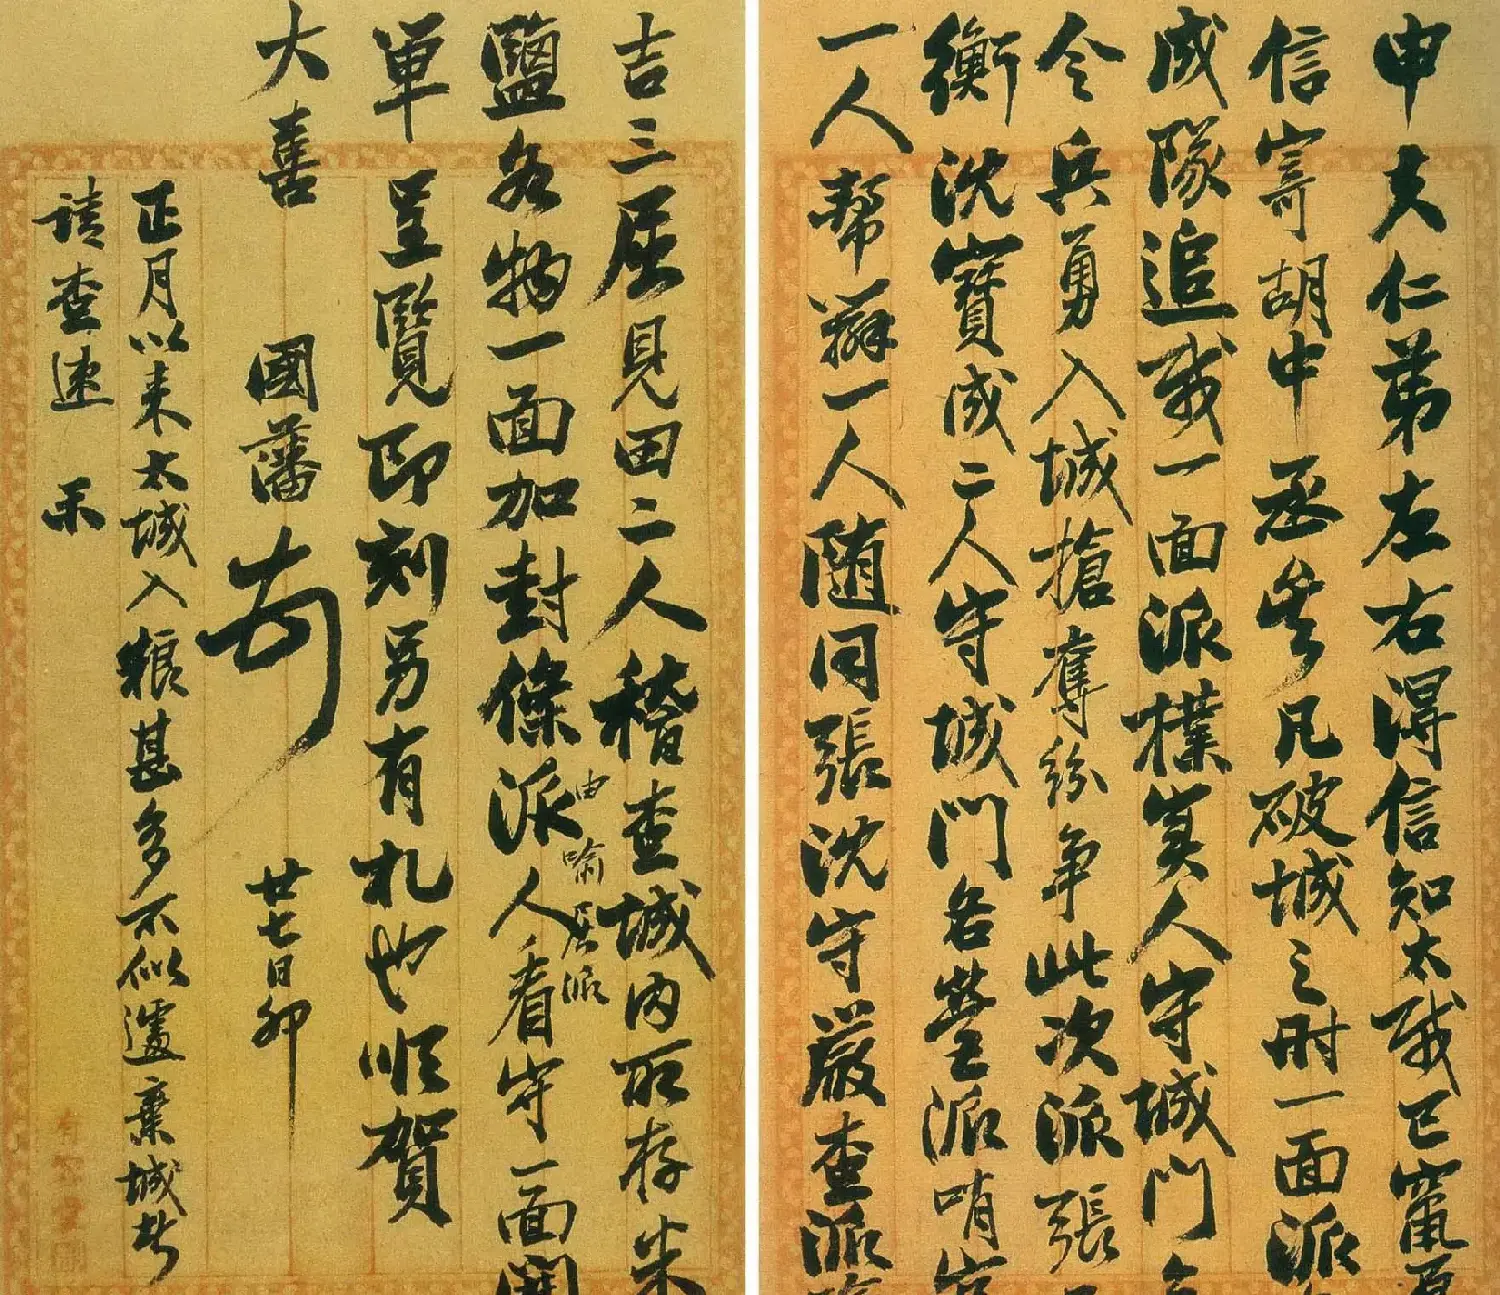 申夫仁弟左右得信知太賊已竄
信寄胡中丞矣凡破城之時一面派
成隊追賊一面派樸實人守城門
令兵勇入城搶奪紛爭此次派張
衡沈寶成二人守城門各營派哨
一人幫辦一人隨同張沈守嚴查派
吉三屈見田二人稽查城內所存米
鹽各物一面加封條派人看守一面開
由喻屈派
單呈覽即刻另有札也順賀
大善 國藩 廿七日卯
正月以來太城入糧甚多不似遽棄城者
請查速示